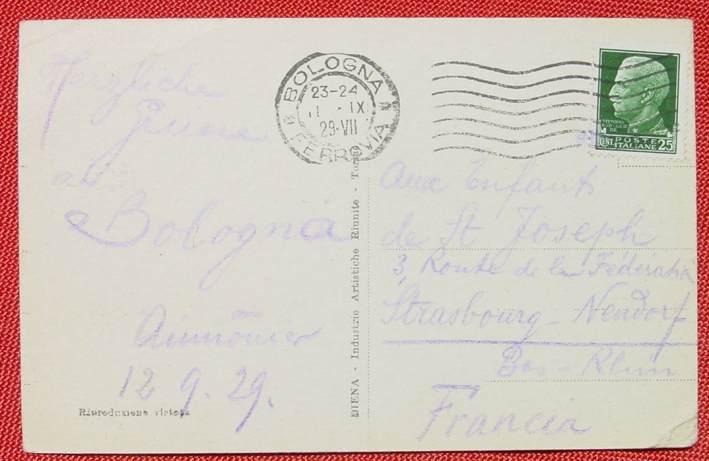 Herzliche
Grüsse
aus
Bologna
Aumônier
12.9.29.
Riproduzione vietata
DIENA - Industrie Artistiche Riunite - Torino
BOLOGNA
23-24
IX
29·VII
FERROVIA
POSTE
ITALIANE
CENT. 25
Aux Enfants
de St Joseph
3, Route de la Fédération
Strasbourg - Neudorf
Bas-Rhin
Francia